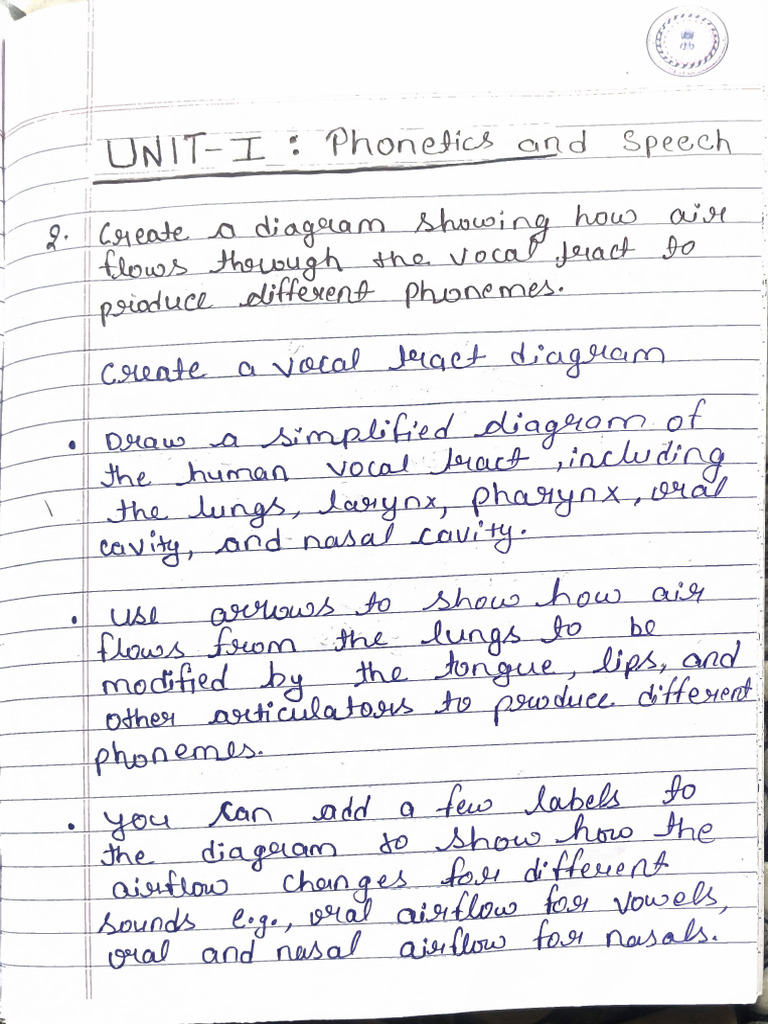 UNIT-I : Phonetics and Speech
2. Create a diagram showing how air
flows through the vocal tract to
produce different phonemes.
Create a vocal tract diagram
• Draw a simplified diagram of
the human vocal tract, including
the lungs, larynx, pharynx, oral
cavity, and nasal cavity.
• Use arrows to show how air
flows from the lungs to be
modified by the tongue, lips, and
other articulators to produce different
phonemes.
• You can add a few labels to
the diagram to show how the
airflow changes for different
sounds e.g., oral airflow for vowels,
oral and nasal airflow for nasals.